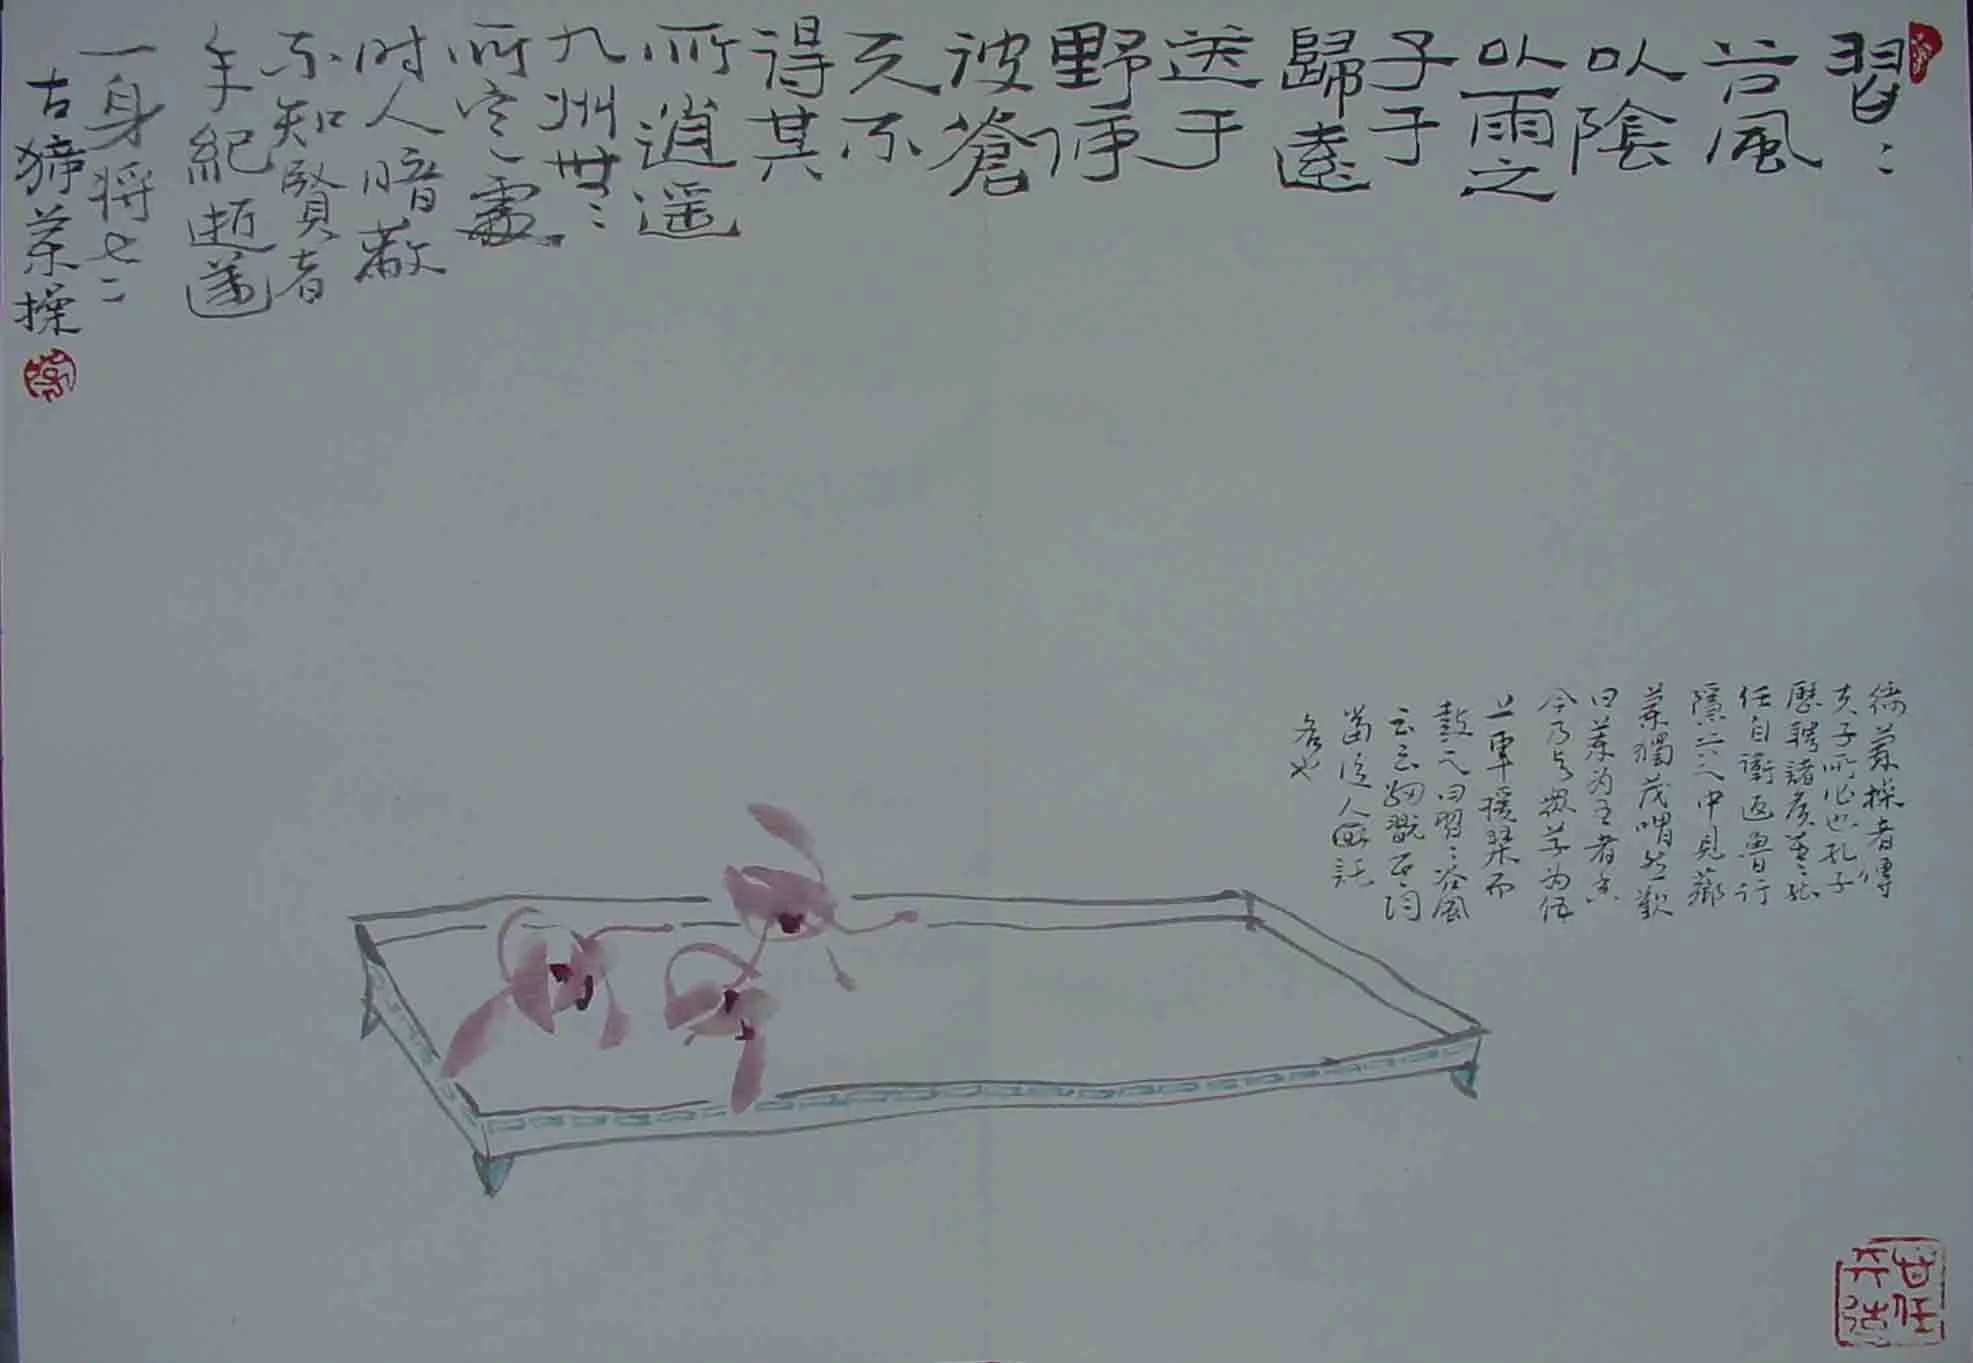 習〻
谷風
以陰
以雨之
子于
歸遠
送于
野何
彼蒼
天不
得其
所逍遥
九州無〻
所定〻處
时人暗蔽
不知賢者
年紀逝邁
一身将老〻
古猗蘭操
猗蘭操者傳
夫子所作也孔子
歷聘諸侯莫〻能
任自衛返魯行
隱谷之中見薌
蘭獨茂喟然歎
曰蘭为王者香
今乃与衆草为伍
止車援琴而
鼓之曰習〻谷風
云云
當後人所託
名也